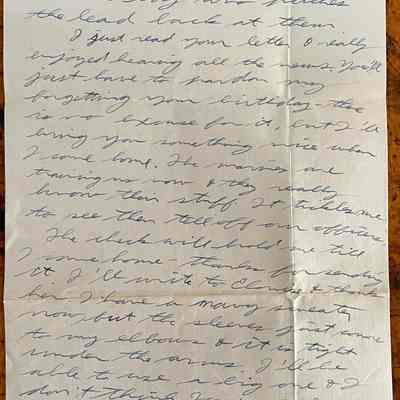 the lead back at them
I just read your letter & really
enjoyed hearing all the news. You'll
just have to pardon my
forgetting your birthday - there
is no excuse for it, but I'll
bring you something nice when
I come home. The marines are
training us now & they really
know their stuff. It tickles me
to see them tell off our officers.
The check will hold me till
I come home - thanks for sending
it. I'll write to & thank
her. I have a navy sweater
now, but the sleeves just come
to my elbows & it is tight
under the arms. I'll be
able to use a big one & I
don't think